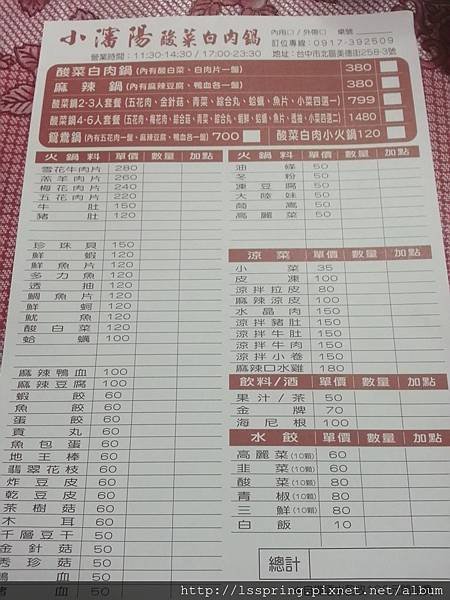 小瀋陽酸菜白肉鍋
內用□ / 外帶□ 桌號
營業時間：11:30-14:30 / 17:00-23:30
訂位專線：0917-392509
地址：台中市北區美德街258-3號
酸菜白肉鍋 (內有酸白菜、白肉片一盤) 380
麻辣鍋 (內有麻辣豆腐、鴨血各一盤) 380
酸菜鍋2-3人套餐 (五花肉、金針菇、青菜、綜合丸、蛤蠣、魚片、小菜四選一) 799
酸菜鍋4-6人套餐 1480
鴛鴦鍋 (內有五花肉一盤、麻辣豆腐、鴨血各一盤) 700 酸菜白肉小火鍋120
火鍋料 單價 數量 加點
雪花牛肉片 280
羔羊肉片 260
梅花肉片 240
五花肉片 220
牛肚 150
豬肚 120
珍珠貝 150
鮮蝦 120
鮮魚片 120
多力魚 120
透抽 120
鯛魚片 120
鮮蚵 120
魷魚 120
酸白菜 120
蛤蠣 100
麻辣鴨血 100
麻辣豆腐 100
蝦餃 60
魚餃 60
蛋餃 60
貢丸 60
魚包蛋 60
地王棒 60
翡翠花枝 60
炸豆皮 50
乾豆皮 50
茶樹菇 60
木耳 60
千層豆干 50
金針菇 50
秀珍菇 50
鴨血 50
血 50
火鍋料 單價 數量 加點
油條 50
冬粉 50
凍豆腐 50
大陸妹 50
茼蒿 50
高麗菜 50
涼菜 單價 數量 加點
小菜 35
皮凍 100
涼拌拉皮 80
麻辣涼皮 100
水晶肉 150
涼拌豬肚 150
涼拌牛肚 150
涼拌牛肉 150
涼拌小卷 150
麻辣口水雞 180
飲料/酒 單價 數量 加點
果汁/茶 50
金牌 70
海尼根 100
水餃 單價 數量 加點
高麗菜(10顆) 60
韭菜(10顆) 60
酸菜(10顆) 80
青椒(10顆) 80
三鮮(10顆) 80
白飯 10
總計
http://lsspring.pixnet.net/album